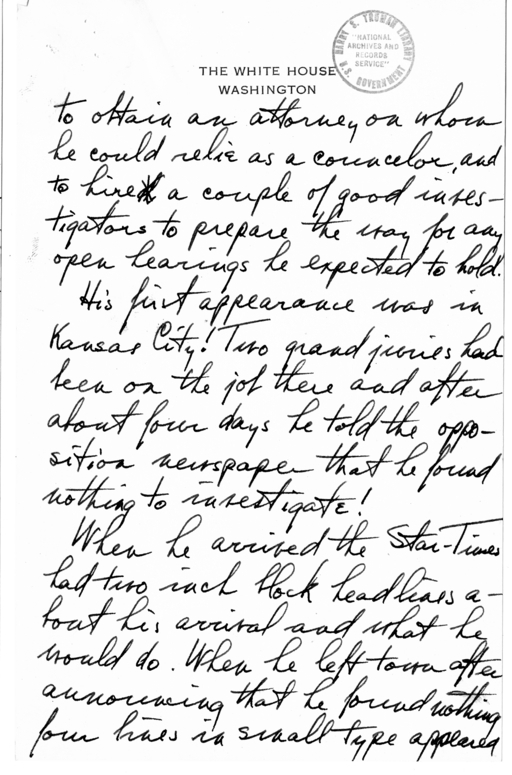 HARRY S. TRUMAN LIBRARY
"NATIONAL
ARCHIVES AND
RECORDS
SERVICE"
U.S. GOVERNMENT
THE WHITE HOUSE
WASHINGTON
to obtain an attorney on whom
he could relie as a councelor, and
to hire a couple of good inves-
tigators to prepare the way for any
open hearings he expected to hold.
His first appearance was in
Kansas City! Two grand juries had
been on the job there and after
about four days he told the oppo-
sition newspaper that he found
nothing to investigate!
When he arrived the Star-Times
had two inch block headlines a-
bout his arrival and what he
would do. When he left town after
announcing that he found nothing
four lines in small type appeared